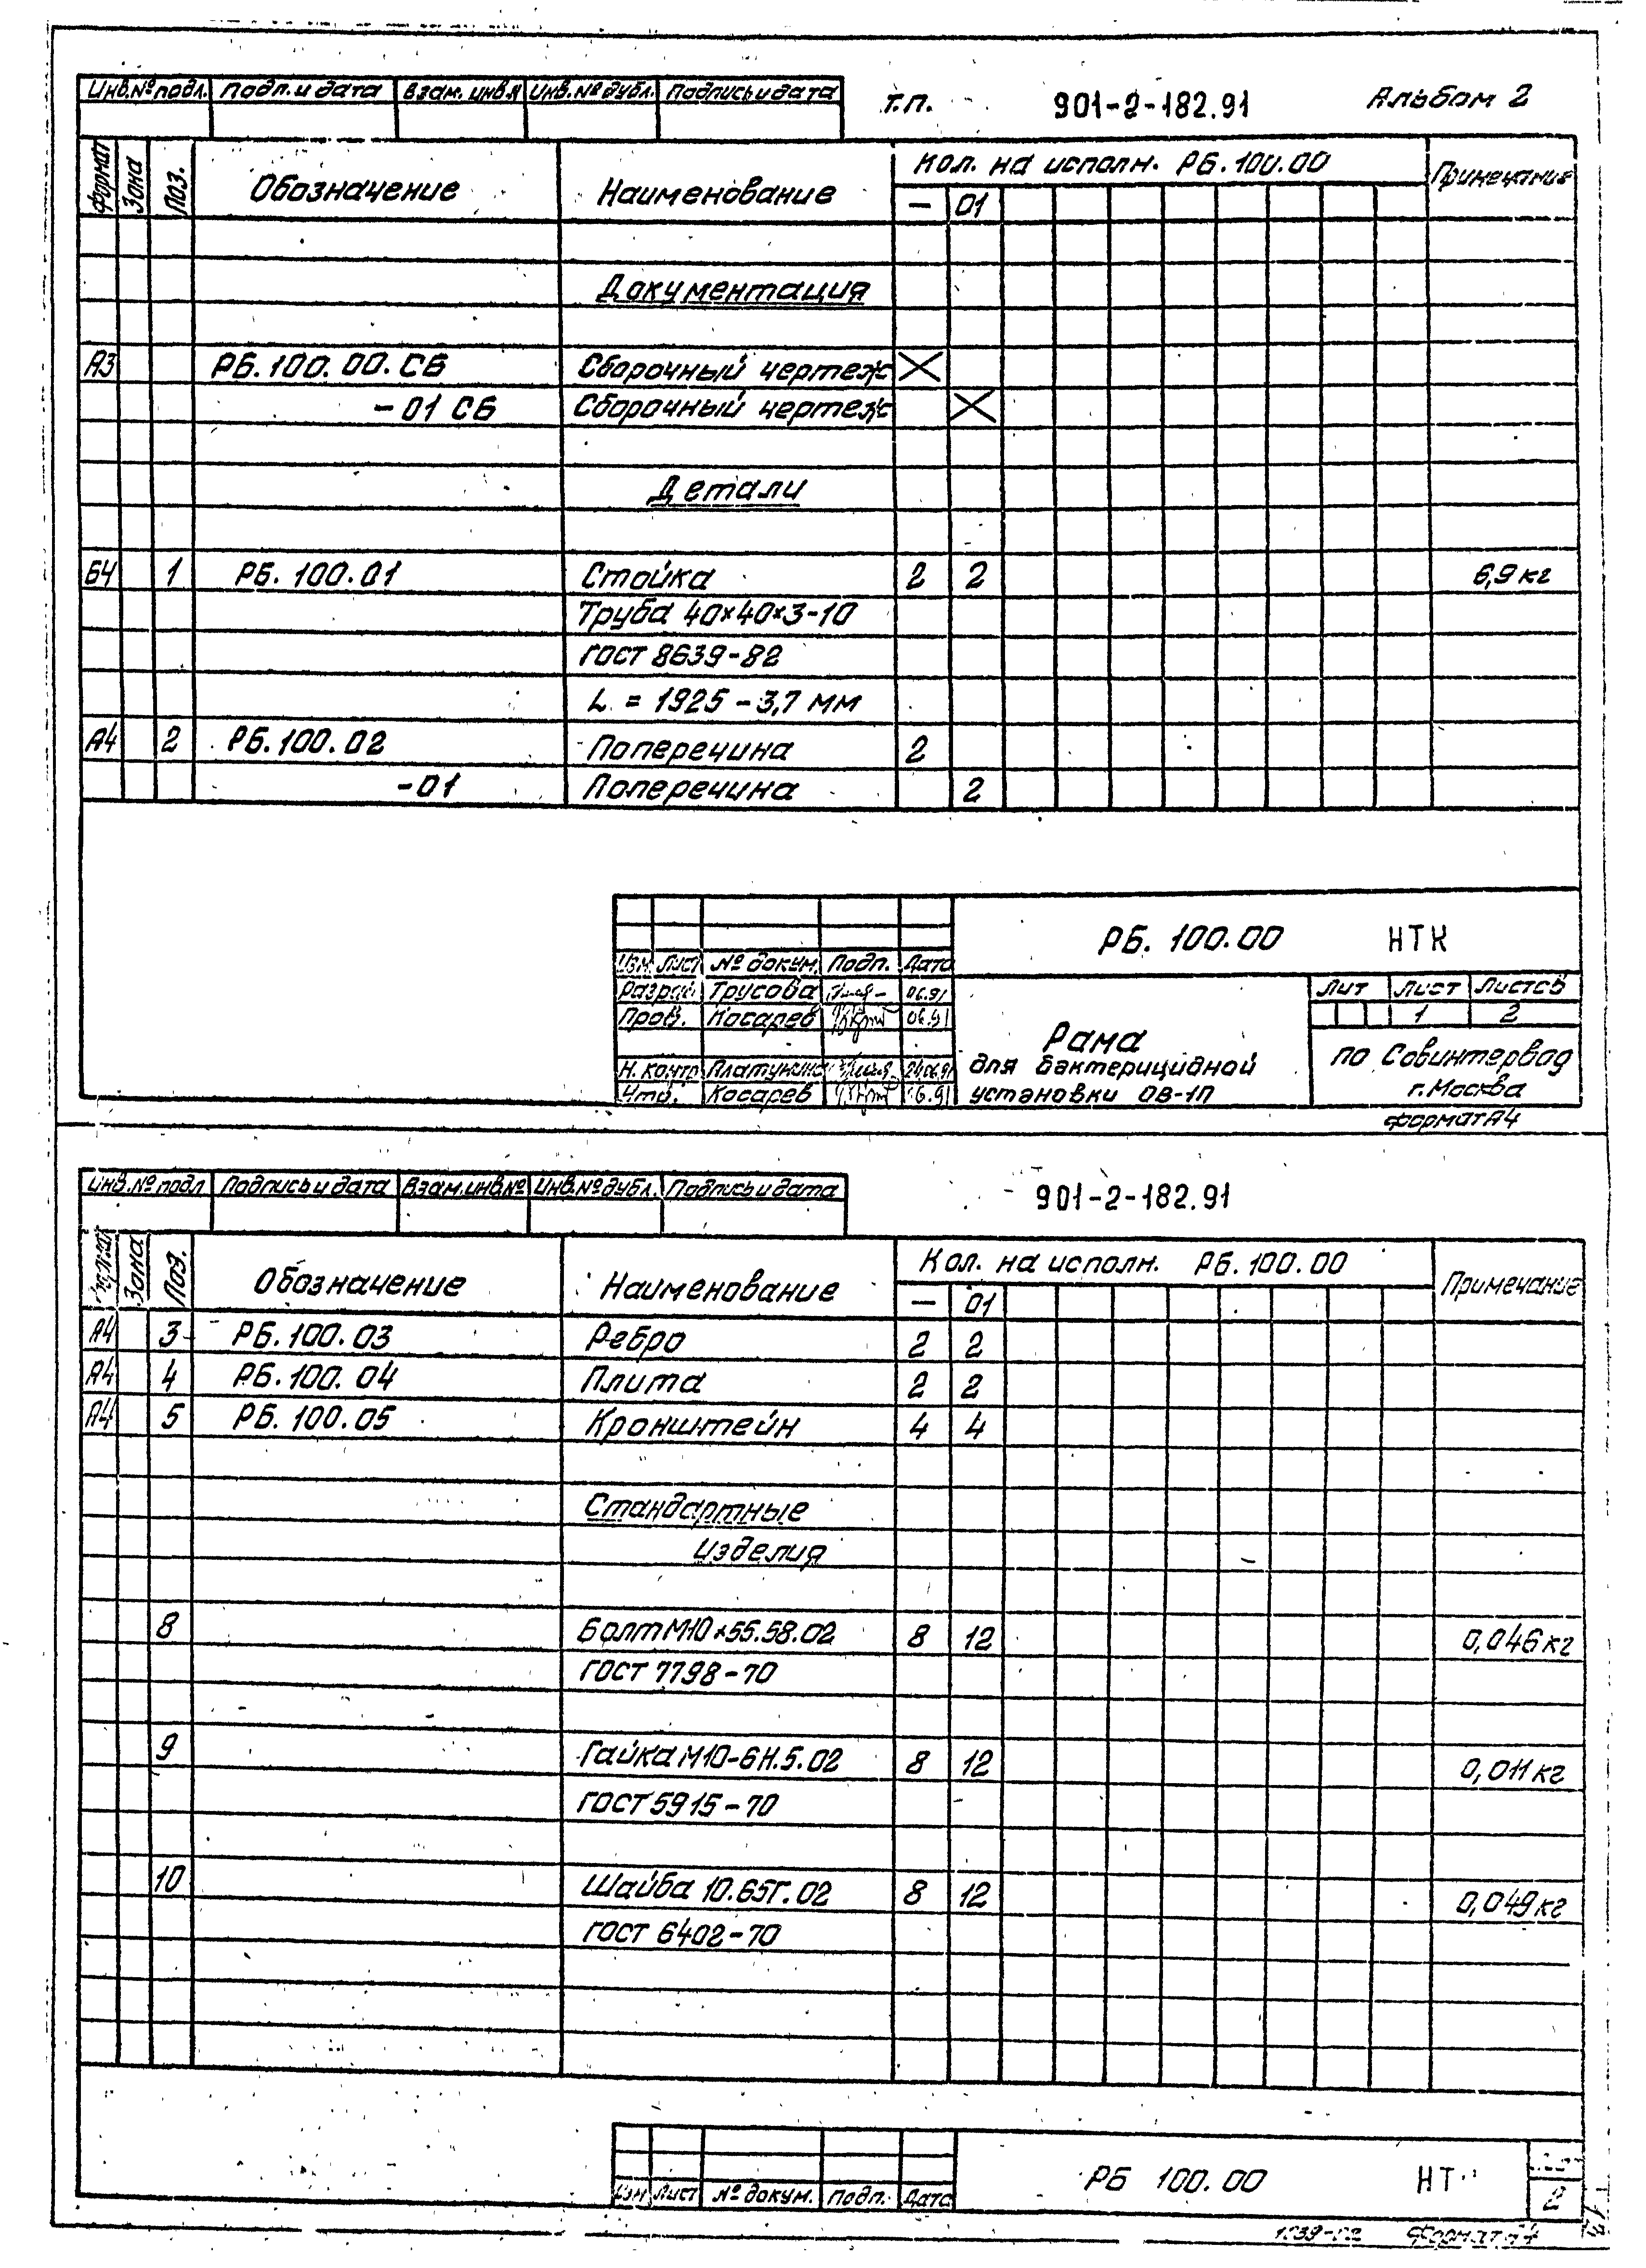 Инв.№ подл. Подп. и дата Взам. инв.№ Инв.№ дубл. Подпись и дата
Т.П. 901-2-182.91 Альбом 2
Формат Зона Поз. Обозначение Наименование Кол. на исполн. РБ.100.00 Примечание
— 01
Документация
А3 РБ.100.00.СБ Сборочный чертеж
-01 СБ Сборочный чертеж
Детали
Б4 1 РБ.100.01 Стойка 2 2 6,9 кг
Труба 40×40×3-10
ГОСТ 8639-82
L = 1925 - 3,7 мм
А4 2 РБ.100.02 Поперечина 2
-01 Поперечина 2
РБ. 100.00 НТК
Изм Лист № докум. Подп. Дата
Разраб. Трусова 06.91
Пров. Косарев 06.91
Н. контр Платунина 24.06.91
Утв. Косарев 06.91
Рама
для бактерицидной
установки ОВ-1П
Лит Лист Листов
1 2
ПО Совинтервод
г. Москва
Формат А4
Инв.№ подл Подпись и дата Взам.инв№ Инв.№ дубл. Подпись и дата
901-2-182.91
Формат Зона Поз. Обозначение Наименование Кол. на исполн. РБ.100.00 Примечание
— 01
А4 3 РБ.100.03 Ребро 2 2
А4 4 РБ.100.04 Плита 2 2
А4 5 РБ.100.05 Кронштейн 4 4
Стандартные
изделия
8 Болт М10×55.58.02 8 12 0,046 кг
ГОСТ 7798-70
9 Гайка М10-6Н.5.02 8 12 0,011 кг
ГОСТ 5915-70
10 Шайба 10.65Г.02 8 12 0,049 кг
ГОСТ 6402-70
РБ 100.00 НТ
2
Изм Лист № докум. Подп. Дата
Формат А4